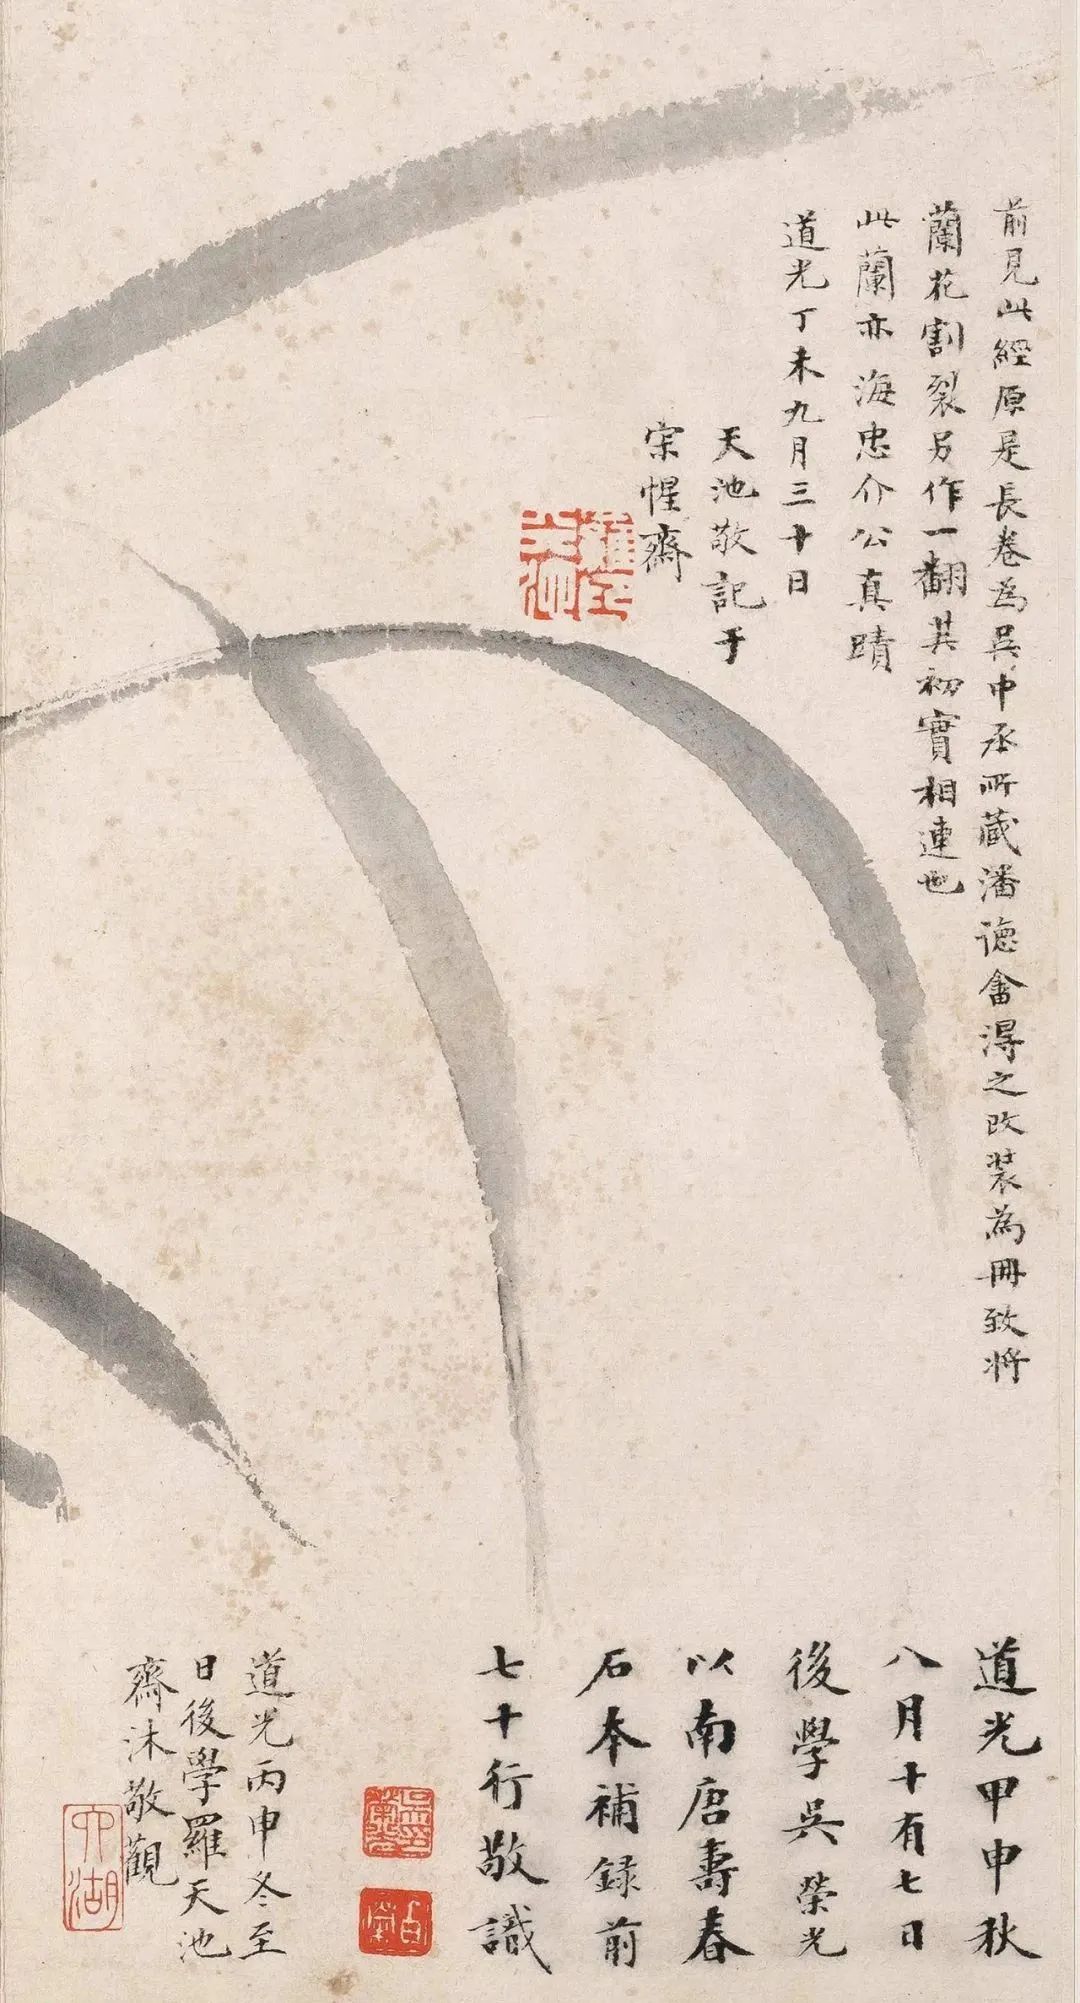 前見此經原是長卷為吳中丞所藏潘德畬得之改裝為冊致將
蘭花割裂另作一翻其初實相連也
此蘭亦海忠介公真蹟
道光丁未九月三十日
天池敬記于
宋惺齋
道光甲申秋
八月十有七日
後學吳榮光
以南唐壽春
石本補録前
七十行敬識
道光丙申冬至
日後學羅天池
齋沐敬觀
六湖